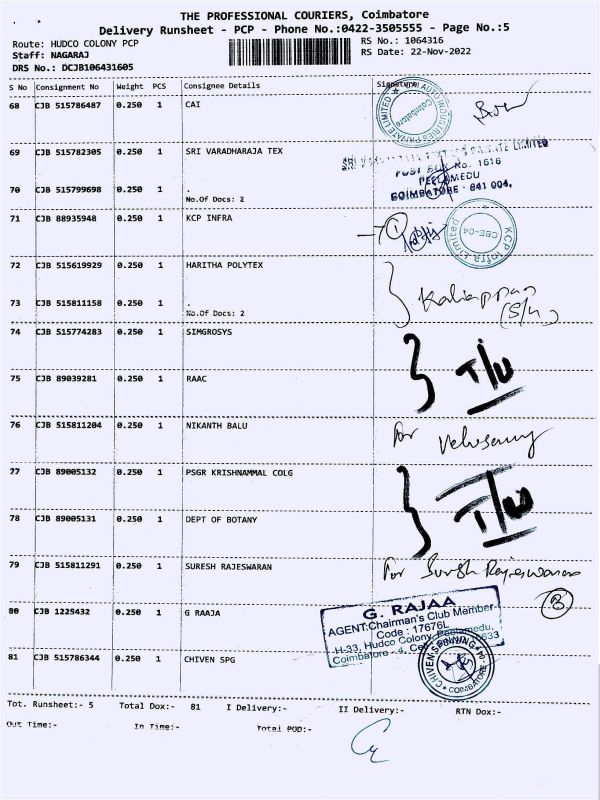 THE PROFESSIONAL COURIERS, Coimbatore
Delivery Runsheet - PCP - Phone No.:0422-3505555 - Page No.:5
Route: HUDCO COLONY PCP RS No.: 1064316
Staff: NAGARAJ RS Date: 22-Nov-2022
DRS No.: DCJB106431605
S No Consignment No Weight PCS Consignee Details Signature
68 CJB 515786487 0.250 1 CAI
69 CJB 515782305 0.250 1 SRI VARADHARAJA TEX
POST BOX No. 1616
PEELAMEDU
COIMBATORE - 641 004.
70 CJB 515799698 0.250 1 .
No.Of Docs: 2
71 CJB 88935948 0.250 1 KCP INFRA
KCP Infra Limited
CBE-04
72 CJB 515619929 0.250 1 HARITHA POLYTEX
Kaliappan
73 CJB 515811158 0.250 1 .
No.Of Docs: 2
74 CJB 515774283 0.250 1 SIMGROSYS
T/U
75 CJB 89039281 0.250 1 RAAC
76 CJB 515811204 0.250 1 NIKANTH BALU
for Veluswamy
77 CJB 89005132 0.250 1 PSGR KRISHNAMMAL COLG
T/U
78 CJB 89005131 0.250 1 DEPT OF BOTANY
79 CJB 515811291 0.250 1 SURESH RAJESWARAN
for Suresh Rajeswaran
80 CJB 1225432 0.250 1 G RAAJA
G. RAJAA
AGENT:Chairman's Club Member
Code : 17676L
H-33, Hudco Colony, Peelamedu,
Coimbatore - 4,
81 CJB 515786344 0.250 1 CHIVEN SPG
COIMBATORE
Tot. Runsheet:- 5 Total Dox:- 81 I Delivery:- II Delivery:- RTN Dox:-
Out Time:- In Time:- Total POD:-